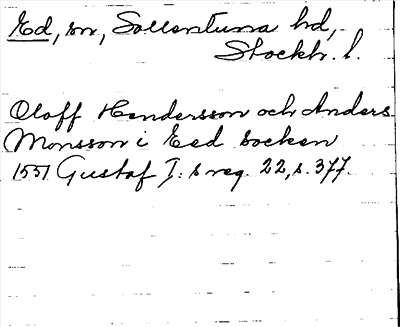 Ed, sn, Sollentuna hd,
Stockh. l.
Oloff Hendersson och Anders
Monsson i Eed socken
1551 Gustaf I:s reg. 22, s. 377.